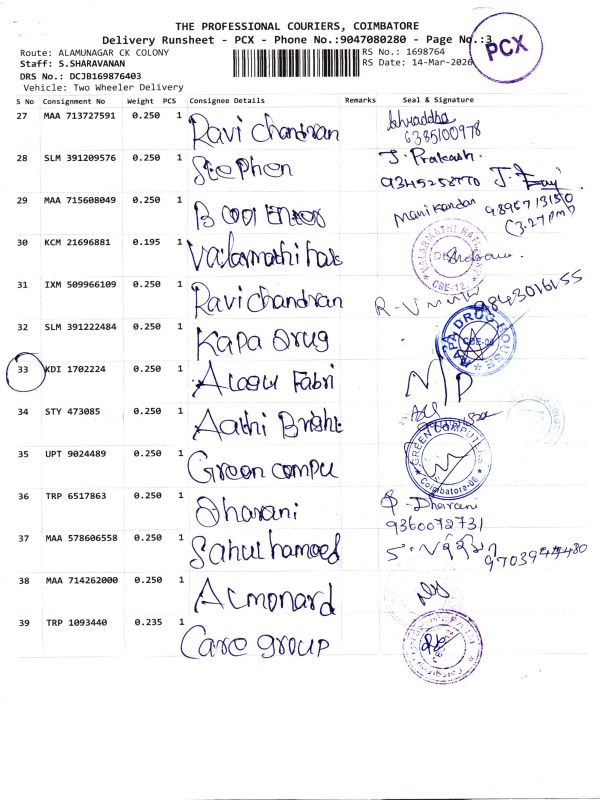 THE PROFESSIONAL COURIERS, COIMBATORE
Delivery Runsheet - PCX - Phone No.:9047080280 - Page No.:3
PCX
Route: ALAMUNAGAR CK COLONY
RS No.: 1698764
Staff: S.SHARAVANAN
RS Date: 14-Mar-2026
DRS No.: DCJB169876403
Vehicle: Two Wheeler Delivery
S No Consignment No Weight PCS Consignee Details Remarks Seal & Signature
27 MAA 713727591 0.250 1 Ravi chandran
6385100978
28 SLM 391209576 0.250 1 Stephen J. Prakash.
9345258770
29 MAA 715608049 0.250 1 B cool Manikandan
(3.27 pm)
30 KCM 21696881 0.195 1 Valarmathi
CBE-12
31 IXM 509966109 0.250 1 Ravi chandran
9843016155
32 SLM 391222484 0.250 1 Kapa Drug
KAPA DRUG HOUSE
33 KDI 1702224 0.250 1 Fabri N/P
34 STY 473085 0.250 1 Aathi Bright
35 UPT 9024489 0.250 1 Green compu
GREEN COMPUTERS
Coimbatore-06
36 TRP 6517863 0.250 1 Dharani Dharani
9360072731
37 MAA 578606558 0.250 1 Sahulhameed
38 MAA 714262000 0.250 1 Almonard
39 TRP 1093440 0.235 1 Care group